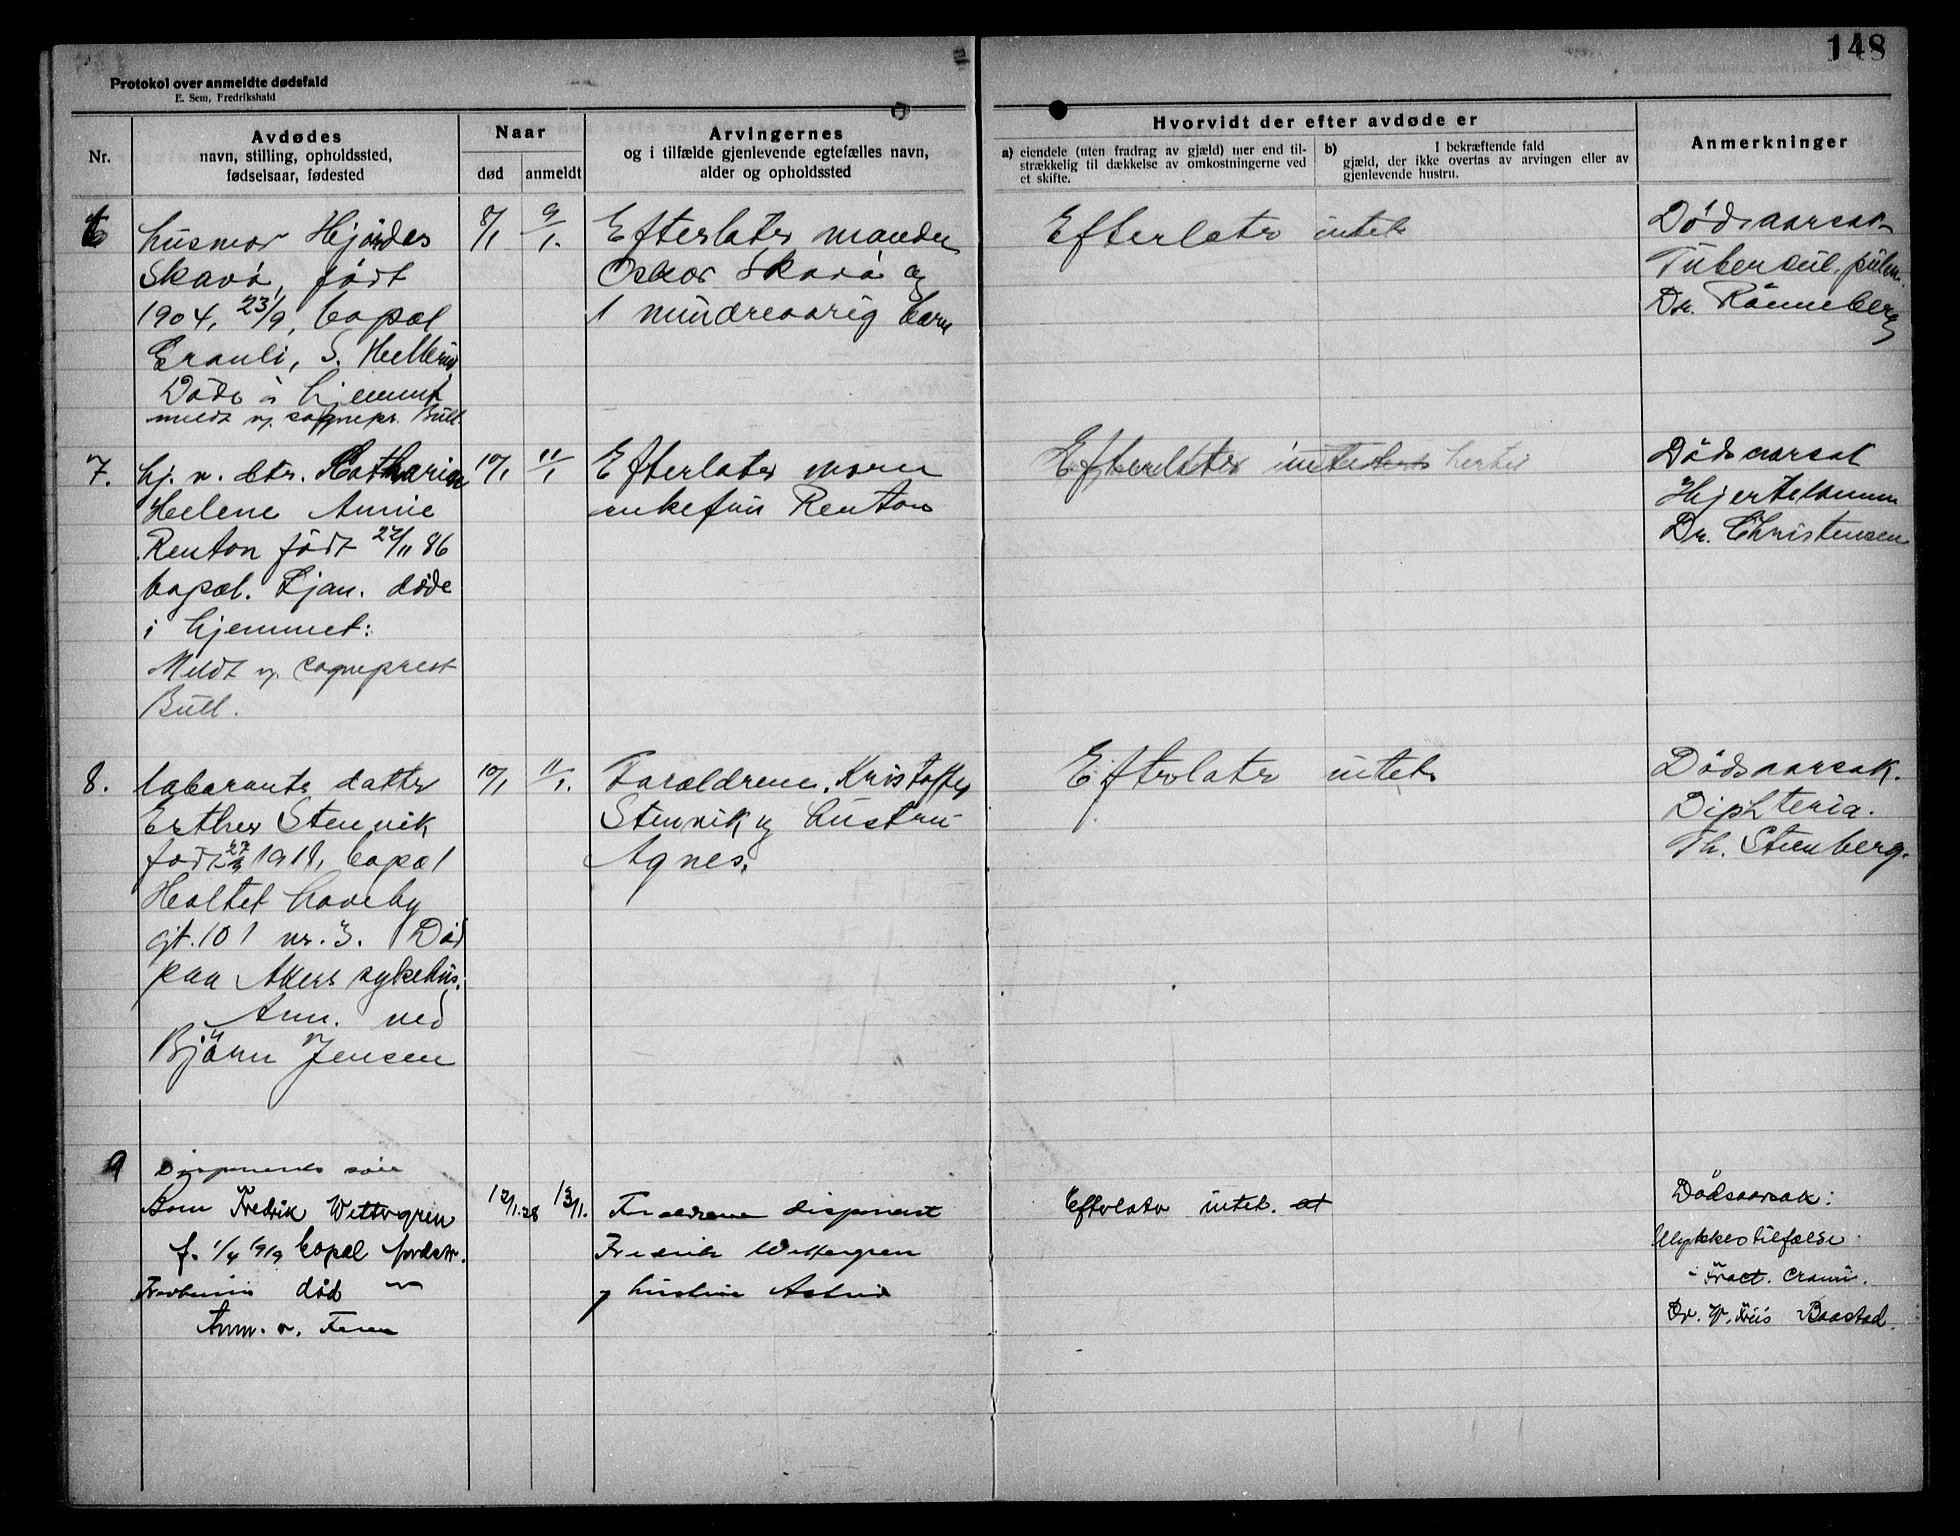 148
Protokol over anmeldte dødsfald
E. Sem, Fredrikshald
Nr.
Avdødes
navn, stilling, opholdssted,
fødselsaar, fødested
Naar
død
anmeldt
Arvingernes
og i tilfælde gjenlevende egtefælles navn,
alder og opholdssted
Hvorvidt der efter avdøde er
a) eiendele (uten fradrag av gjæld) mer end til-
strækkelig til dækkelse av omkostningerne ved
et skifte.
b) I bekræftende fald
gjæld, der ikke overtas av arvingen eller av
gjenlevende hustru.
Anmerkninger
6
husmor Hjørdes
Skavø, født
1904, 23/9, bopæl
S.
Døde i hjemmet
meldt v. sognepr. Bull.
8/1
9/1.
Efterlater manden
Oskar Skavø og
1 mindreaarig barn
Efterlater intet
Dødsaarsak
Tubercul. pulm.
Dr. Rønneberg
7.
hj. v. dtr. Catharina
Helene Annie
Renton født 22/11 86
bopæl. Ljan. døde
i hjemmet:
Meldt v. sogneprest
Bull.
10/1
11/1
Efterlater moren
enkefru Renton
Efterlater intet
Dødsaarsak
Hjertelammelse
Dr. Christensen
8.
laborants datter
Esther Stenvik
født 1918, bopæl
Holtet haveby
gt. 101 nr. 3. Død
paa Akers sykehus.
Anm. ved
Bjørn Jensen
10/1
11/1.
Forældrene, Kristoffer
Stenvik og hustru
Agnes.
Efterlater intet
Dødsaarsak.
Diphteria.
Th. Steenberg.
9
Disponents søn
Fredrik Wettergren
f. 1/4 1919 bopæl
død
Anm. v. Faren
12/1.28
13/1.
Forældrene disponent
Fredrik Wettergren
og hustru Astrid
Efterlater intet. at
Dødsaarsak:
Ulykkestilfælde.
- Fract. cranii.
Dr. Baastad.